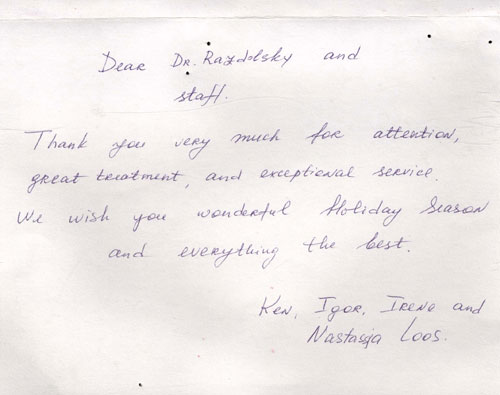 Dear Dr. Razdolsky and
staff.
Thank you very much for attention,
great treatment, and exceptional service.
We wish you wonderful Holiday Season
and everything the best.
Ken, Igor, Irene and
Nastasja Loos.